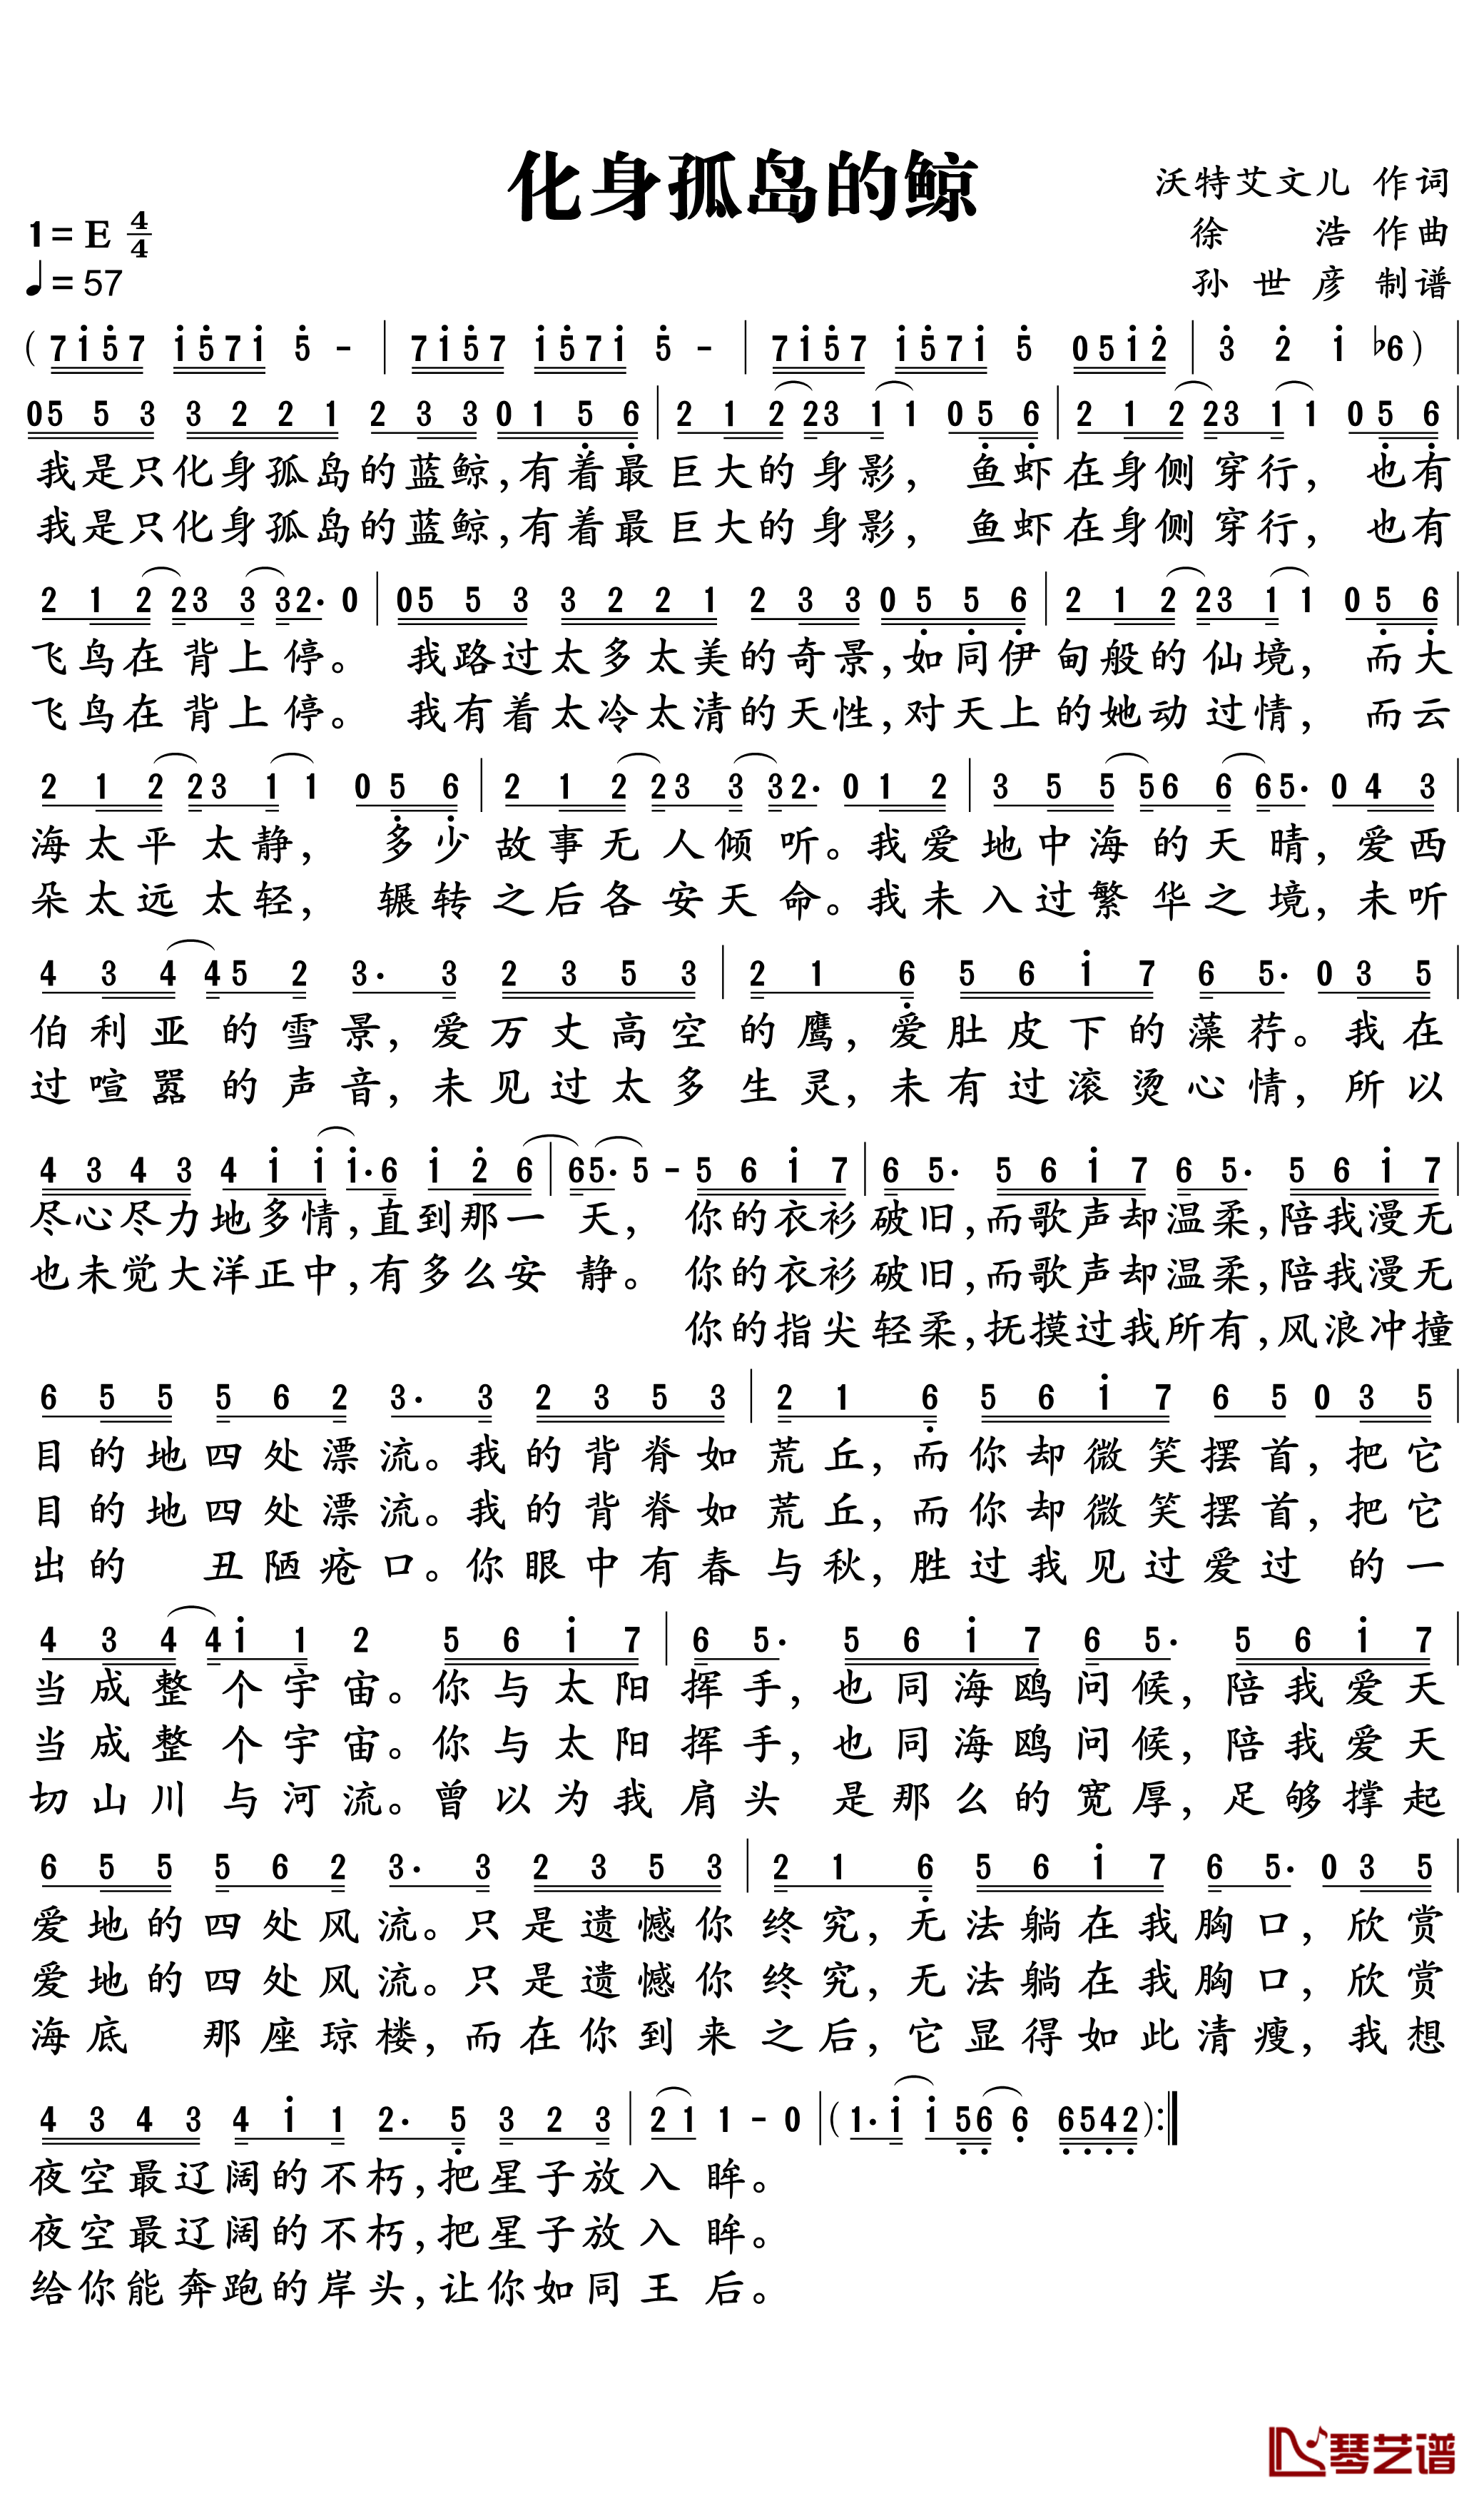 化身孤岛的鲸
沃特艾文儿 作词
徐 浩 作曲
孙世彦 制谱
1=E 4/4
♩=57
( 7 1 5 7 1 5 7 1 5 - | 7 1 5 7 1 5 7 1 5 - | 7 1 5 7 1 5 7 1 5 0 5 1 2 | 3 2 1 ♭6 ) |
0 5 5 3 3 2 2 1 2 3 3 0 1 5 6 | 2 1 2 2 3 1 1 0 5 6 | 2 1 2 2 3 1 1 0 5 6 |
我是只化身孤岛的蓝鲸,有着最巨大的身影, 鱼虾在身侧穿行, 也有
我是只化身孤岛的蓝鲸,有着最巨大的身影, 鱼虾在身侧穿行, 也有
2 1 2 2 3 3 3 2. 0 | 0 5 5 3 3 2 2 1 2 3 3 0 5 5 6 | 2 1 2 2 3 1 1 0 5 6 |
飞鸟在背上停。 我路过太多太美的奇景,如同伊甸般的仙境, 而大
飞鸟在背上停。 我有着太冷太清的天性,对天上的她动过情, 而云
2 1 2 2 3 1 1 0 5 6 | 2 1 2 2 3 3 3 2. 0 1 2 | 3 5 5 5 6 6 6 5. 0 4 3 |
海太平太静, 多少故事无人倾听。我爱地中海的天晴,爱西
朵太远太轻, 辗转之后各安天命。我未入过繁华之境,未听
4 3 4 4 5 2 3. 3 2 3 5 3 | 2 1 6 5 6 1 7 6 5. 0 3 5 |
伯利亚的雪景,爱万丈高空的鹰,爱肚皮下的藻荇。我在
过喧嚣的声音,未见过太多生灵,未有过滚烫心情,所以
4 3 4 3 4 1 1 1. 6 1 2 6 | 6 5. 5 - 5 6 1 7 | 6 5. 5 6 1 7 6 5. 5 6 1 7 |
尽心尽力地多情,直到那一天, 你的衣衫破旧,而歌声却温柔,陪我漫无
也未觉大洋正中,有多么安静。 你的衣衫破旧,而歌声却温柔,陪我漫无
你的指尖轻柔,抚摸过我所有,风浪冲撞
6 5 5 5 6 2 3. 3 2 3 5 3 | 2 1 6 5 6 1 7 6 5 0 3 5 |
目的地四处漂流。我的背脊如荒丘,而你却微笑摆首,把它
目的地四处漂流。我的背脊如荒丘,而你却微笑摆首,把它
出的 丑陋疮口。你眼中有春与秋,胜过我见过爱过 的一
4 3 4 4 1 1 2 5 6 1 7 | 6 5. 5 6 1 7 6 5. 5 6 1 7 |
当成整个宇宙。你与太阳挥手,也同海鸥问候,陪我爱天
当成整个宇宙。你与太阳挥手,也同海鸥问候,陪我爱天
切山川与河流。曾以为我肩头 是那么的宽厚,足够撑起
6 5 5 5 6 2 3. 3 2 3 5 3 | 2 1 6 5 6 1 7 6 5. 0 3 5 |
爱地的四处风流。只是遗憾你终究,无法躺在我胸口,欣赏
爱地的四处风流。只是遗憾你终究,无法躺在我胸口,欣赏
海底 那座琼楼,而在你到来之后,它显得如此清瘦,我想
4 3 4 3 4 1 1 2. 5 3 2 3 | 2 1 1 - 0 | ( 1. 1 1 5 6 6 6 5 4 2 ) :|
夜空最辽阔的不朽,把星子放入眸。
夜空最辽阔的不朽,把星子放入眸。
给你能奔跑的岸头,让你如同王后。
琴艺谱